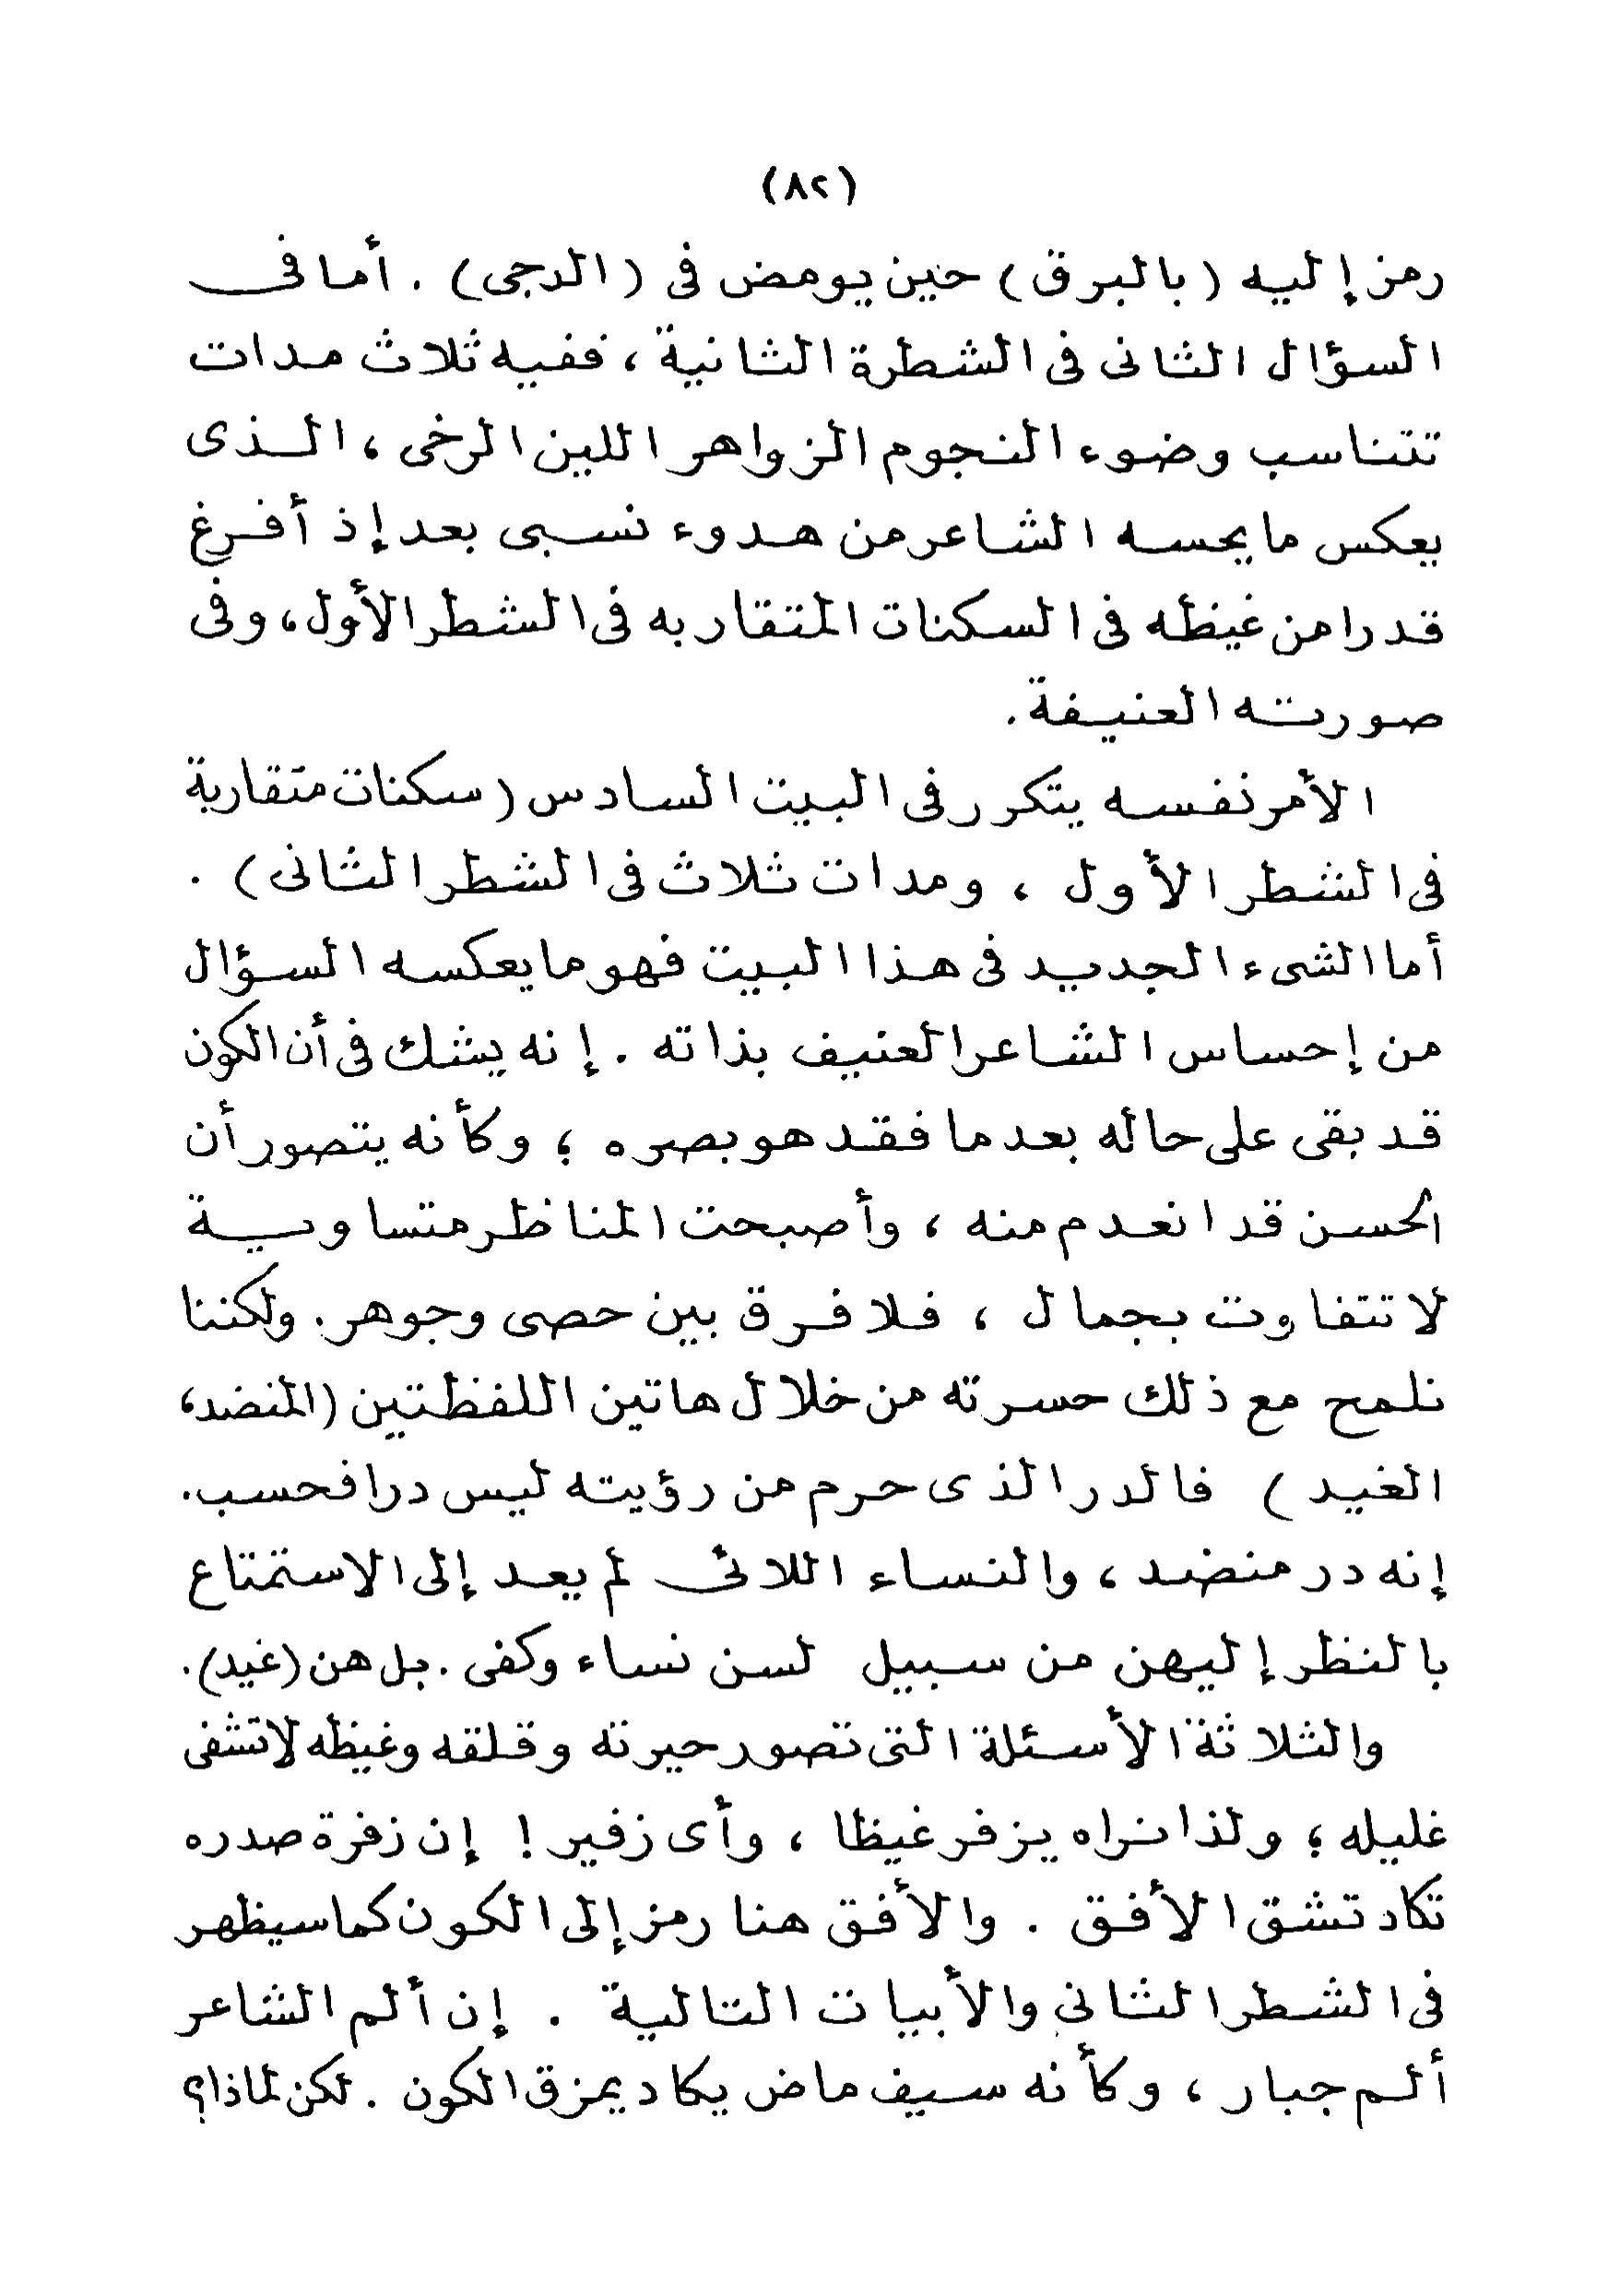 (٨٢)
رمز إليه (بالبرق) حين يومض فى (الدجى) . أما فى
السؤال الثانى فى الشطرة الثانية ، ففيه ثلاث مدات
تتناسب وضوء النجوم الزواهر اللين الرخى ، الذى
يعكس ما يحسه الشاعر من هدوء نسبى بعد إذ أفرغ
قدرا من غيظه فى السكنات المتقاربه فى الشطر الأول ، وفى
صورته العنيفة .
الأمر نفسه يتكرر فى البيت السادس (سكنات متقاربة
فى الشطر الأول ، ومدات ثلاث فى الشطر الثانى) .
أما الشىء الجديد فى هذا البيت فهو ما يعكسه السؤال
من إحساس الشاعر العنيف بذاته . إنه يشك فى أن الكون
قد بقى على حاله بعد ما فقد هو بصره ؛ وكأنه يتصور أن
الحسن قد انعدم منه ، وأصبحت المناظر متساوية
لا تتفاوت بجمال ، فلا فرق بين حصى وجوهر . ولكننا
نلمح مع ذلك حسرته من خلال هاتين اللفظتين (المنضد ،
الغيد) فالدر الذى حرم من رؤيته ليس درا فحسب .
إنه در منضد ، والنساء اللائى لم يعد إلى الاستمتاع
بالنظر إليهن من سبيل لسن نساء وكفى . بل هن (غيد) .
والثلاثة الأسئلة التى تصور حيرته وقلقه وغيظه لا تشفى
غليله ؛ ولذا نراه يزفر غيظا ، وأى زفير ! إن زفرة صدره
تكاد تشق الأفق . والأفق هنا رمز إلى الكون كما سيظهر
فى الشطر الثانى والأبيات التالية . إن ألم الشاعر
ألم جبار ، وكأنه سيف ماض يكاد يمزق الكون . لكن لماذا؟